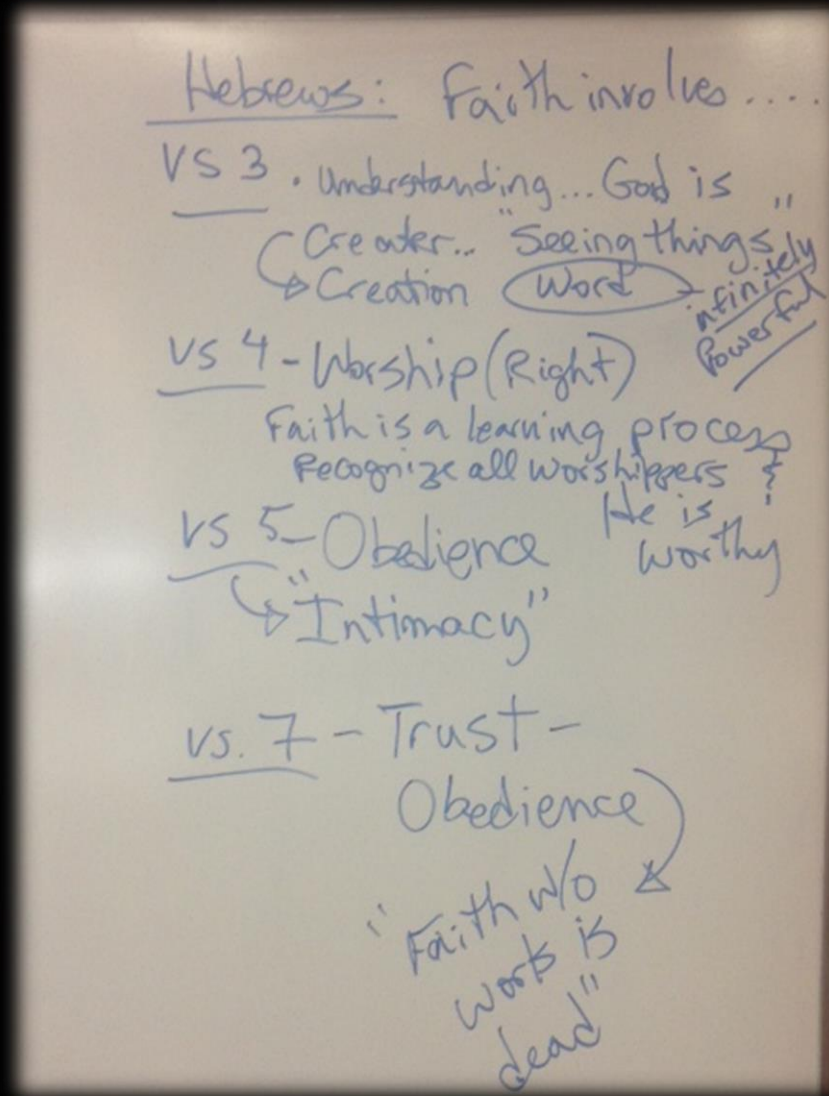 Hebrews: Faith involves ....
VS 3 . Understanding... God is
Creater... "Seeing things"
Creation Word infinitely
Powerful
VS 4 - Worship (Right)
Faith is a learning process
Recognize all worshippers &
He is
worthy
VS 5 - Obedience
"Intimacy"
VS. 7 - Trust -
Obedience
"Faith w/o
works is
dead"